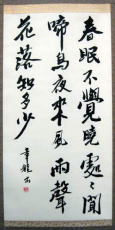 春眠不覺曉處〻聞
啼鳥夜来風雨聲
花落知多少